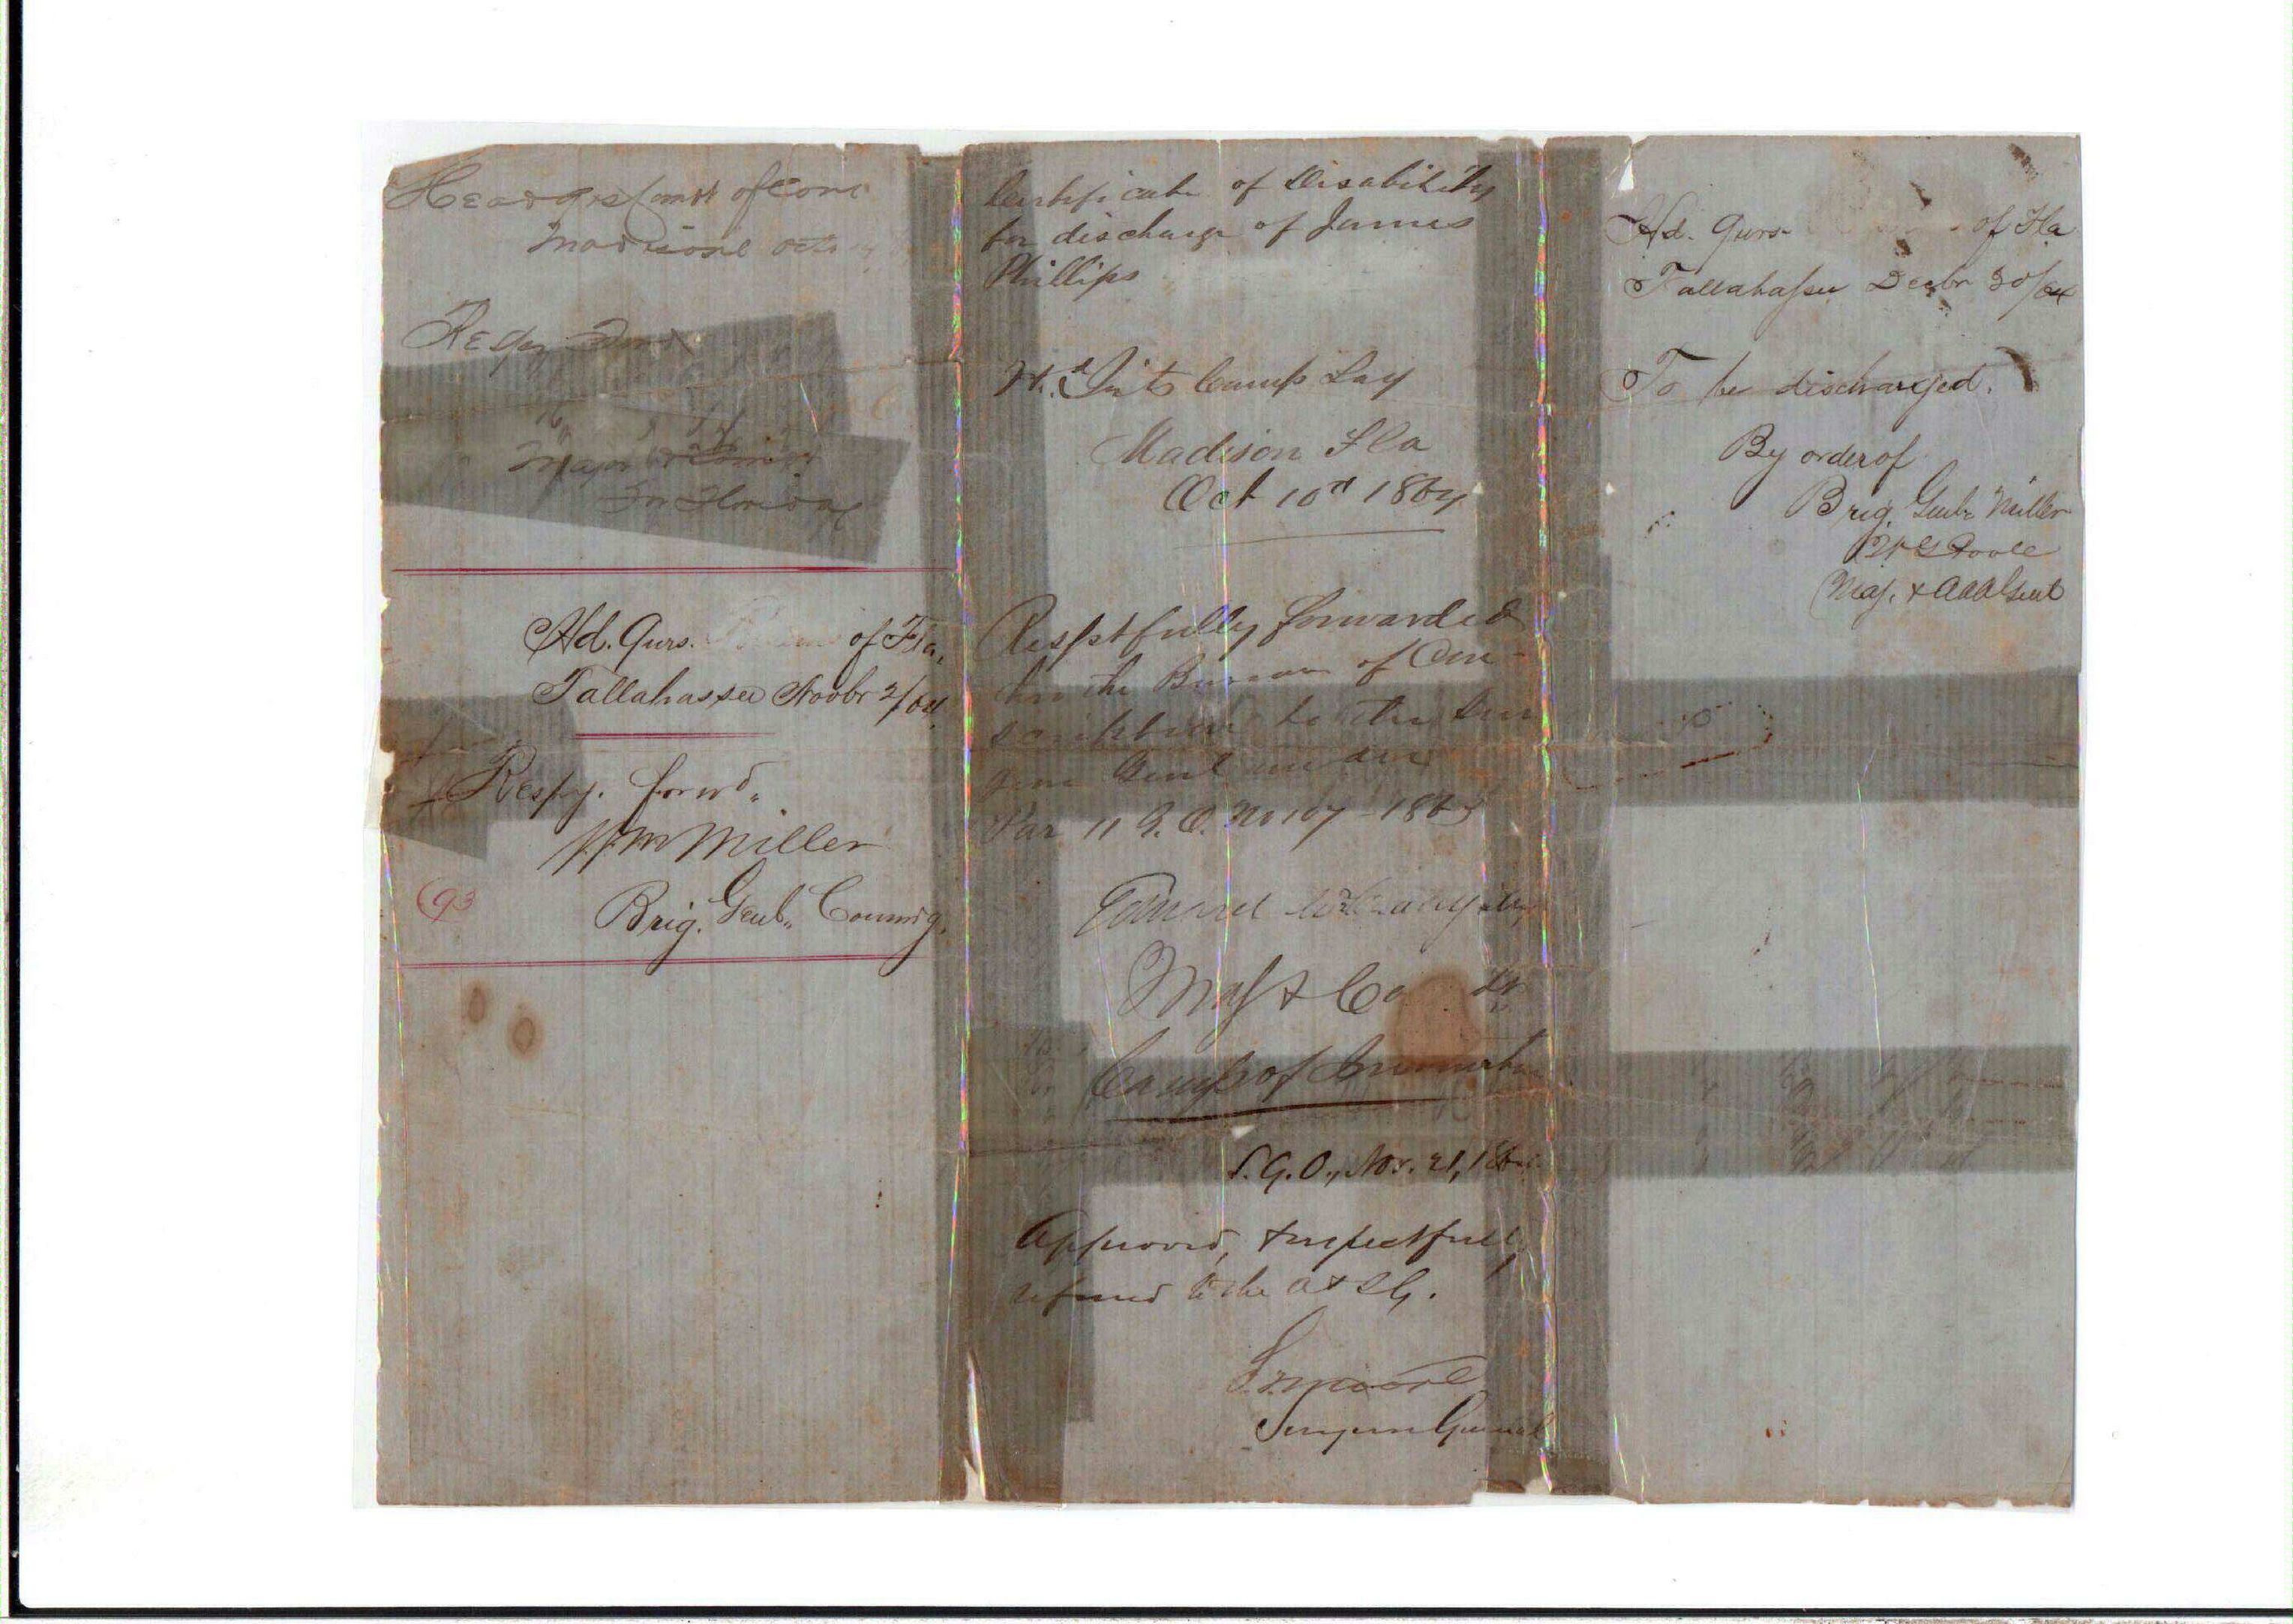 Headqrs Comdt of Cons
Madison Oct
Respy
Major
for Florida
Hd. Qurs. of Fla.
Tallahassee Novbr 2/64
Respy. forwd.
Wm Miller
Brig. Genl. Commdg.
93
Certificate of Disability
for discharge of James
Phillips
Camp Lay
Madison Fla
Oct 10th 1864
Respectfully forwarded
thro the Bureau of Con-
scription to the Sur
geon Genl under
Par 11 G. O. No 107 1863
Edward
Maj & Co
Camp of Instruction
S.G.O., Nov. 21, 186
Approved, & respectfully
referred to the A & I G.
S. P. Moore
Surgeon General
Hd. Qurs. of Fla
Tallahassee Decbr 30/64
To be discharged.
By order of
Brig. Genl. Miller
Poole
Maj. & AAA Genl